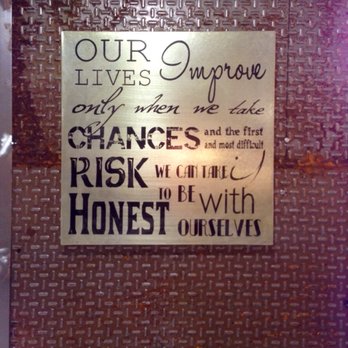 OUR
LIVES Improve
only when we take
CHANCES and the first
and most difficult
RISK WE CAN TAKE is
TO BE with
HONEST OURSELVES